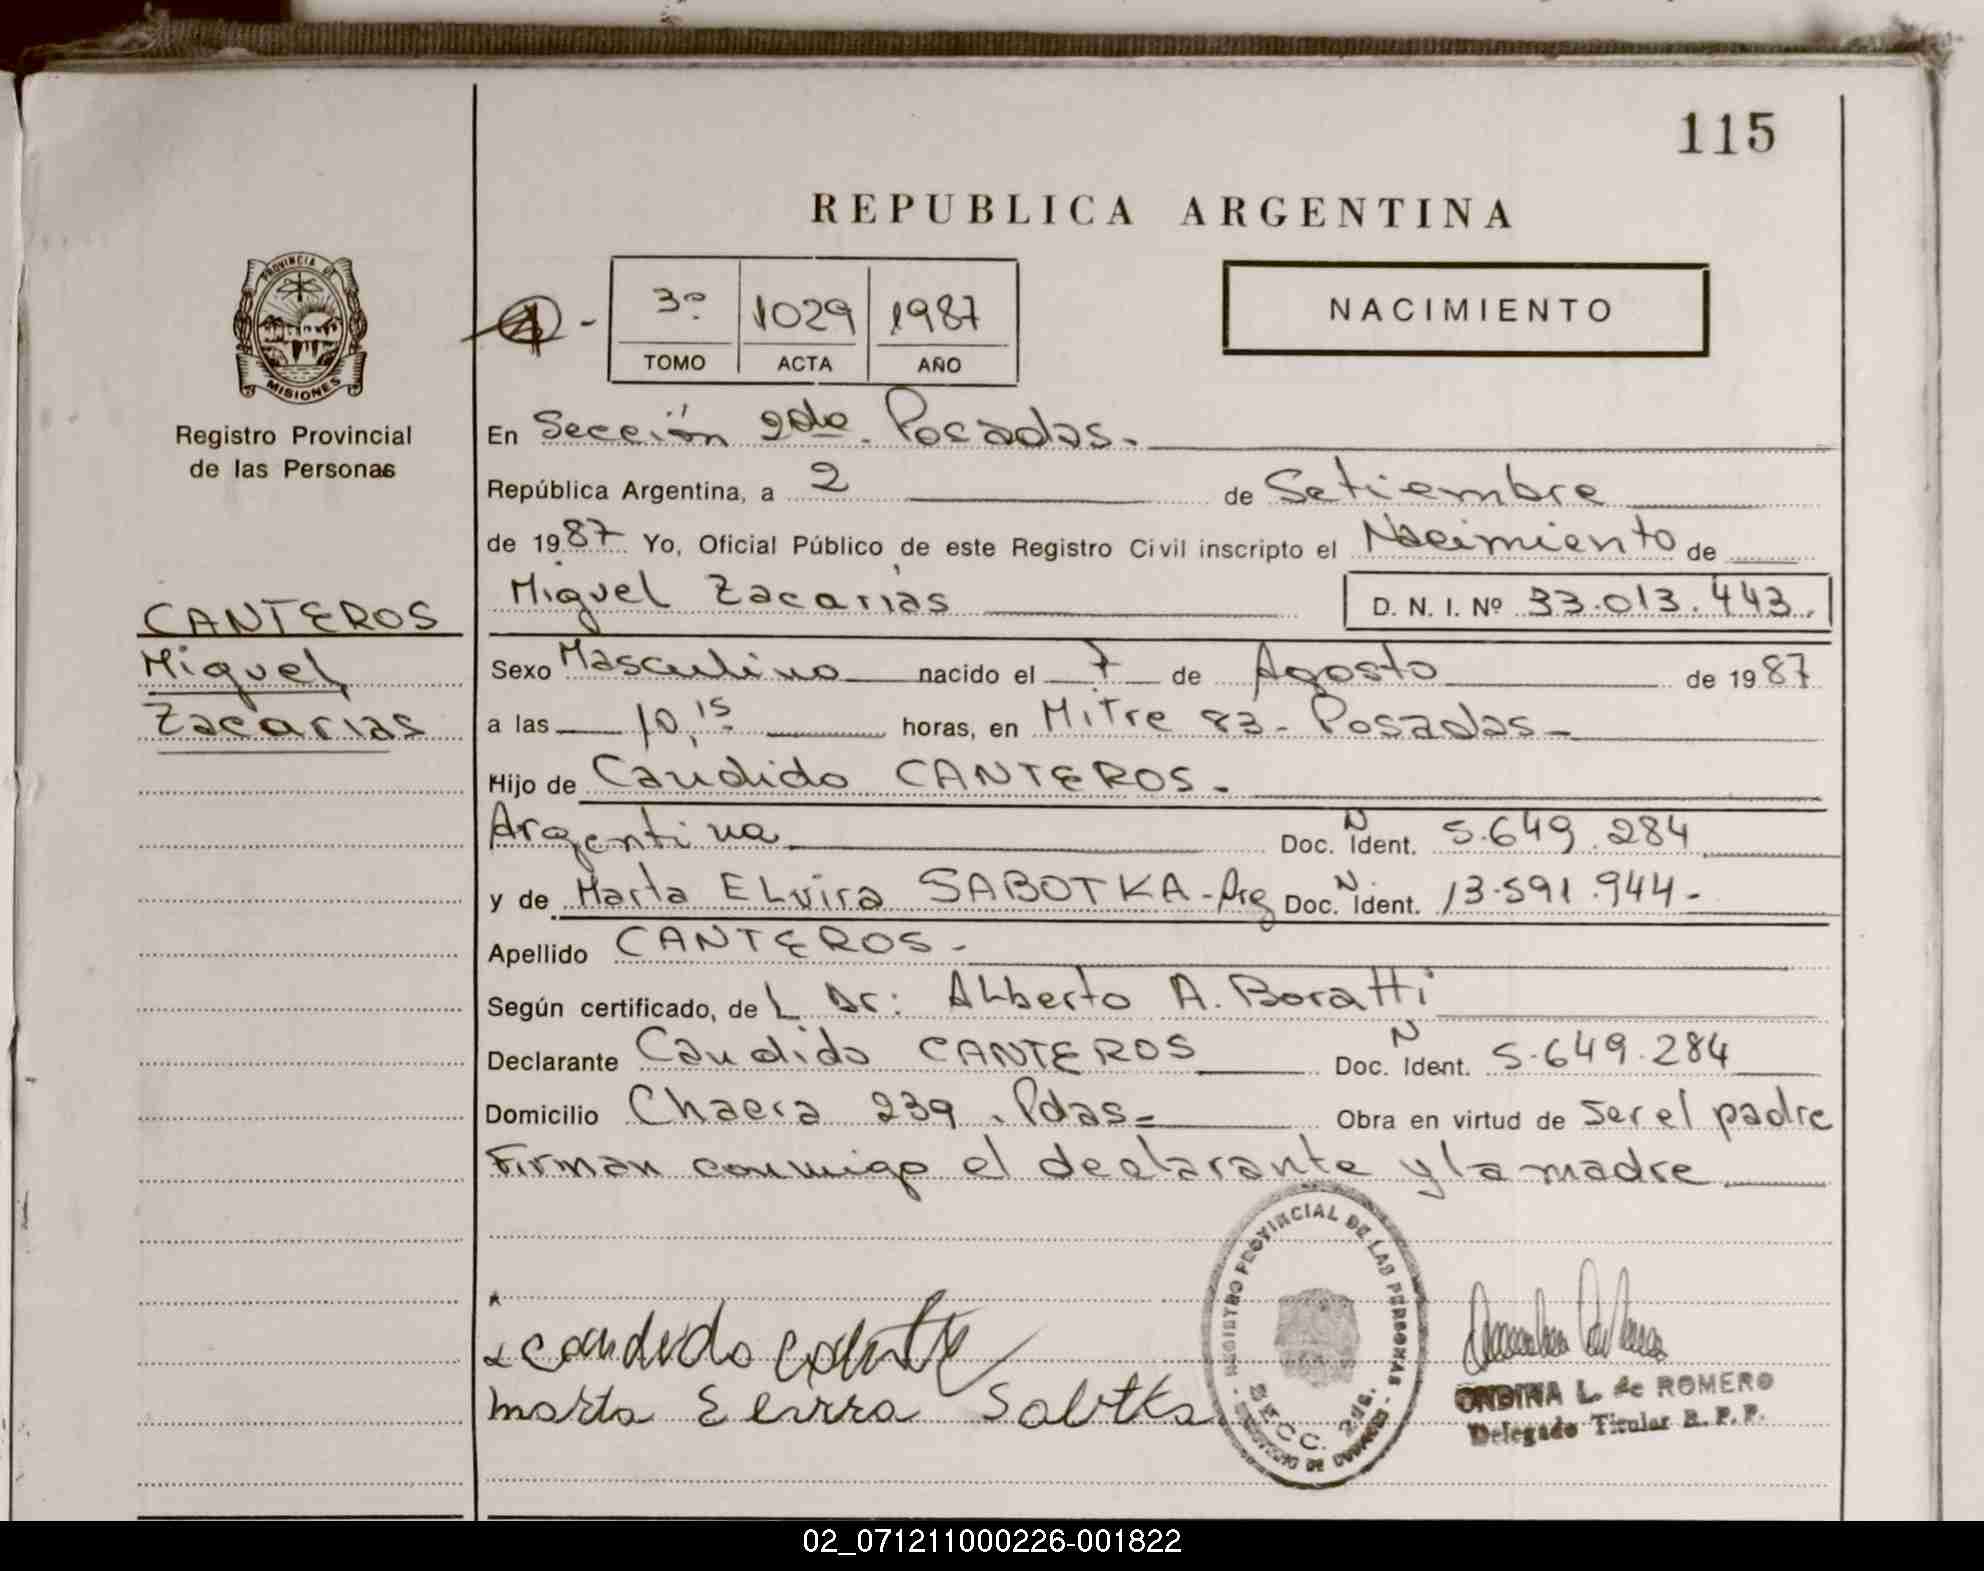 115
REPUBLICA ARGENTINA
PROVINCIA DE
MISIONES
Registro Provincial
de las Personas
3º 1029 1987
TOMO ACTA AÑO
NACIMIENTO
En Sección 2da. Posadas.
República Argentina, a 2 de Setiembre
de 1987 Yo, Oficial Público de este Registro Civil inscripto el Nacimiento de
Miguel Zacarías D. N. I. Nº 33.013.443.
CANTEROS
Miguel
Zacarias
Sexo Masculino nacido el 7 de Agosto de 1987
a las 10,15 horas, en Mitre 83 - Posadas
Hijo de Candido CANTEROS.
Argentina Doc. N Ident. 5.649.284
y de Marta ELvira SABOTKA - Arg Doc. N Ident. 13.591.944-
Apellido CANTEROS-
Según certificado, de L Dr: Alberto A. Boratti
Declarante Candido CANTEROS Doc. N Ident. 5.649.284
Domicilio Chacra 239. Pdas- Obra en virtud de ser el padre
Firman conmigo el declarante y la madre
REGISTRO PROVINCIAL DE LAS PERSONAS
SECC. 2da.
candido
Marta
ONDINA L. de ROMERO
Delegado Titular R. P. P.
02_071211000226-001822